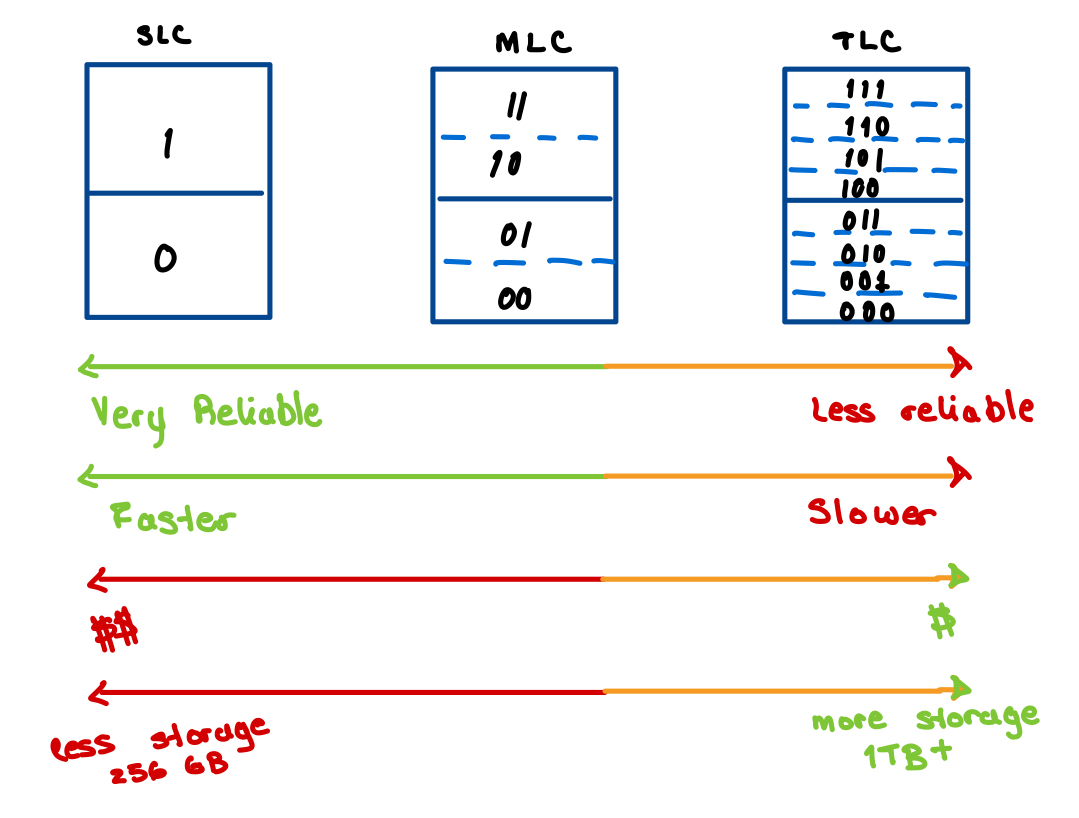 SLC MLC TLC
1
0
11
10
01
00
111
110
101
100
011
010
001
000
Very Reliable Less reliable
Faster Slower
$$ $
less storage more storage
256 GB 1TB+